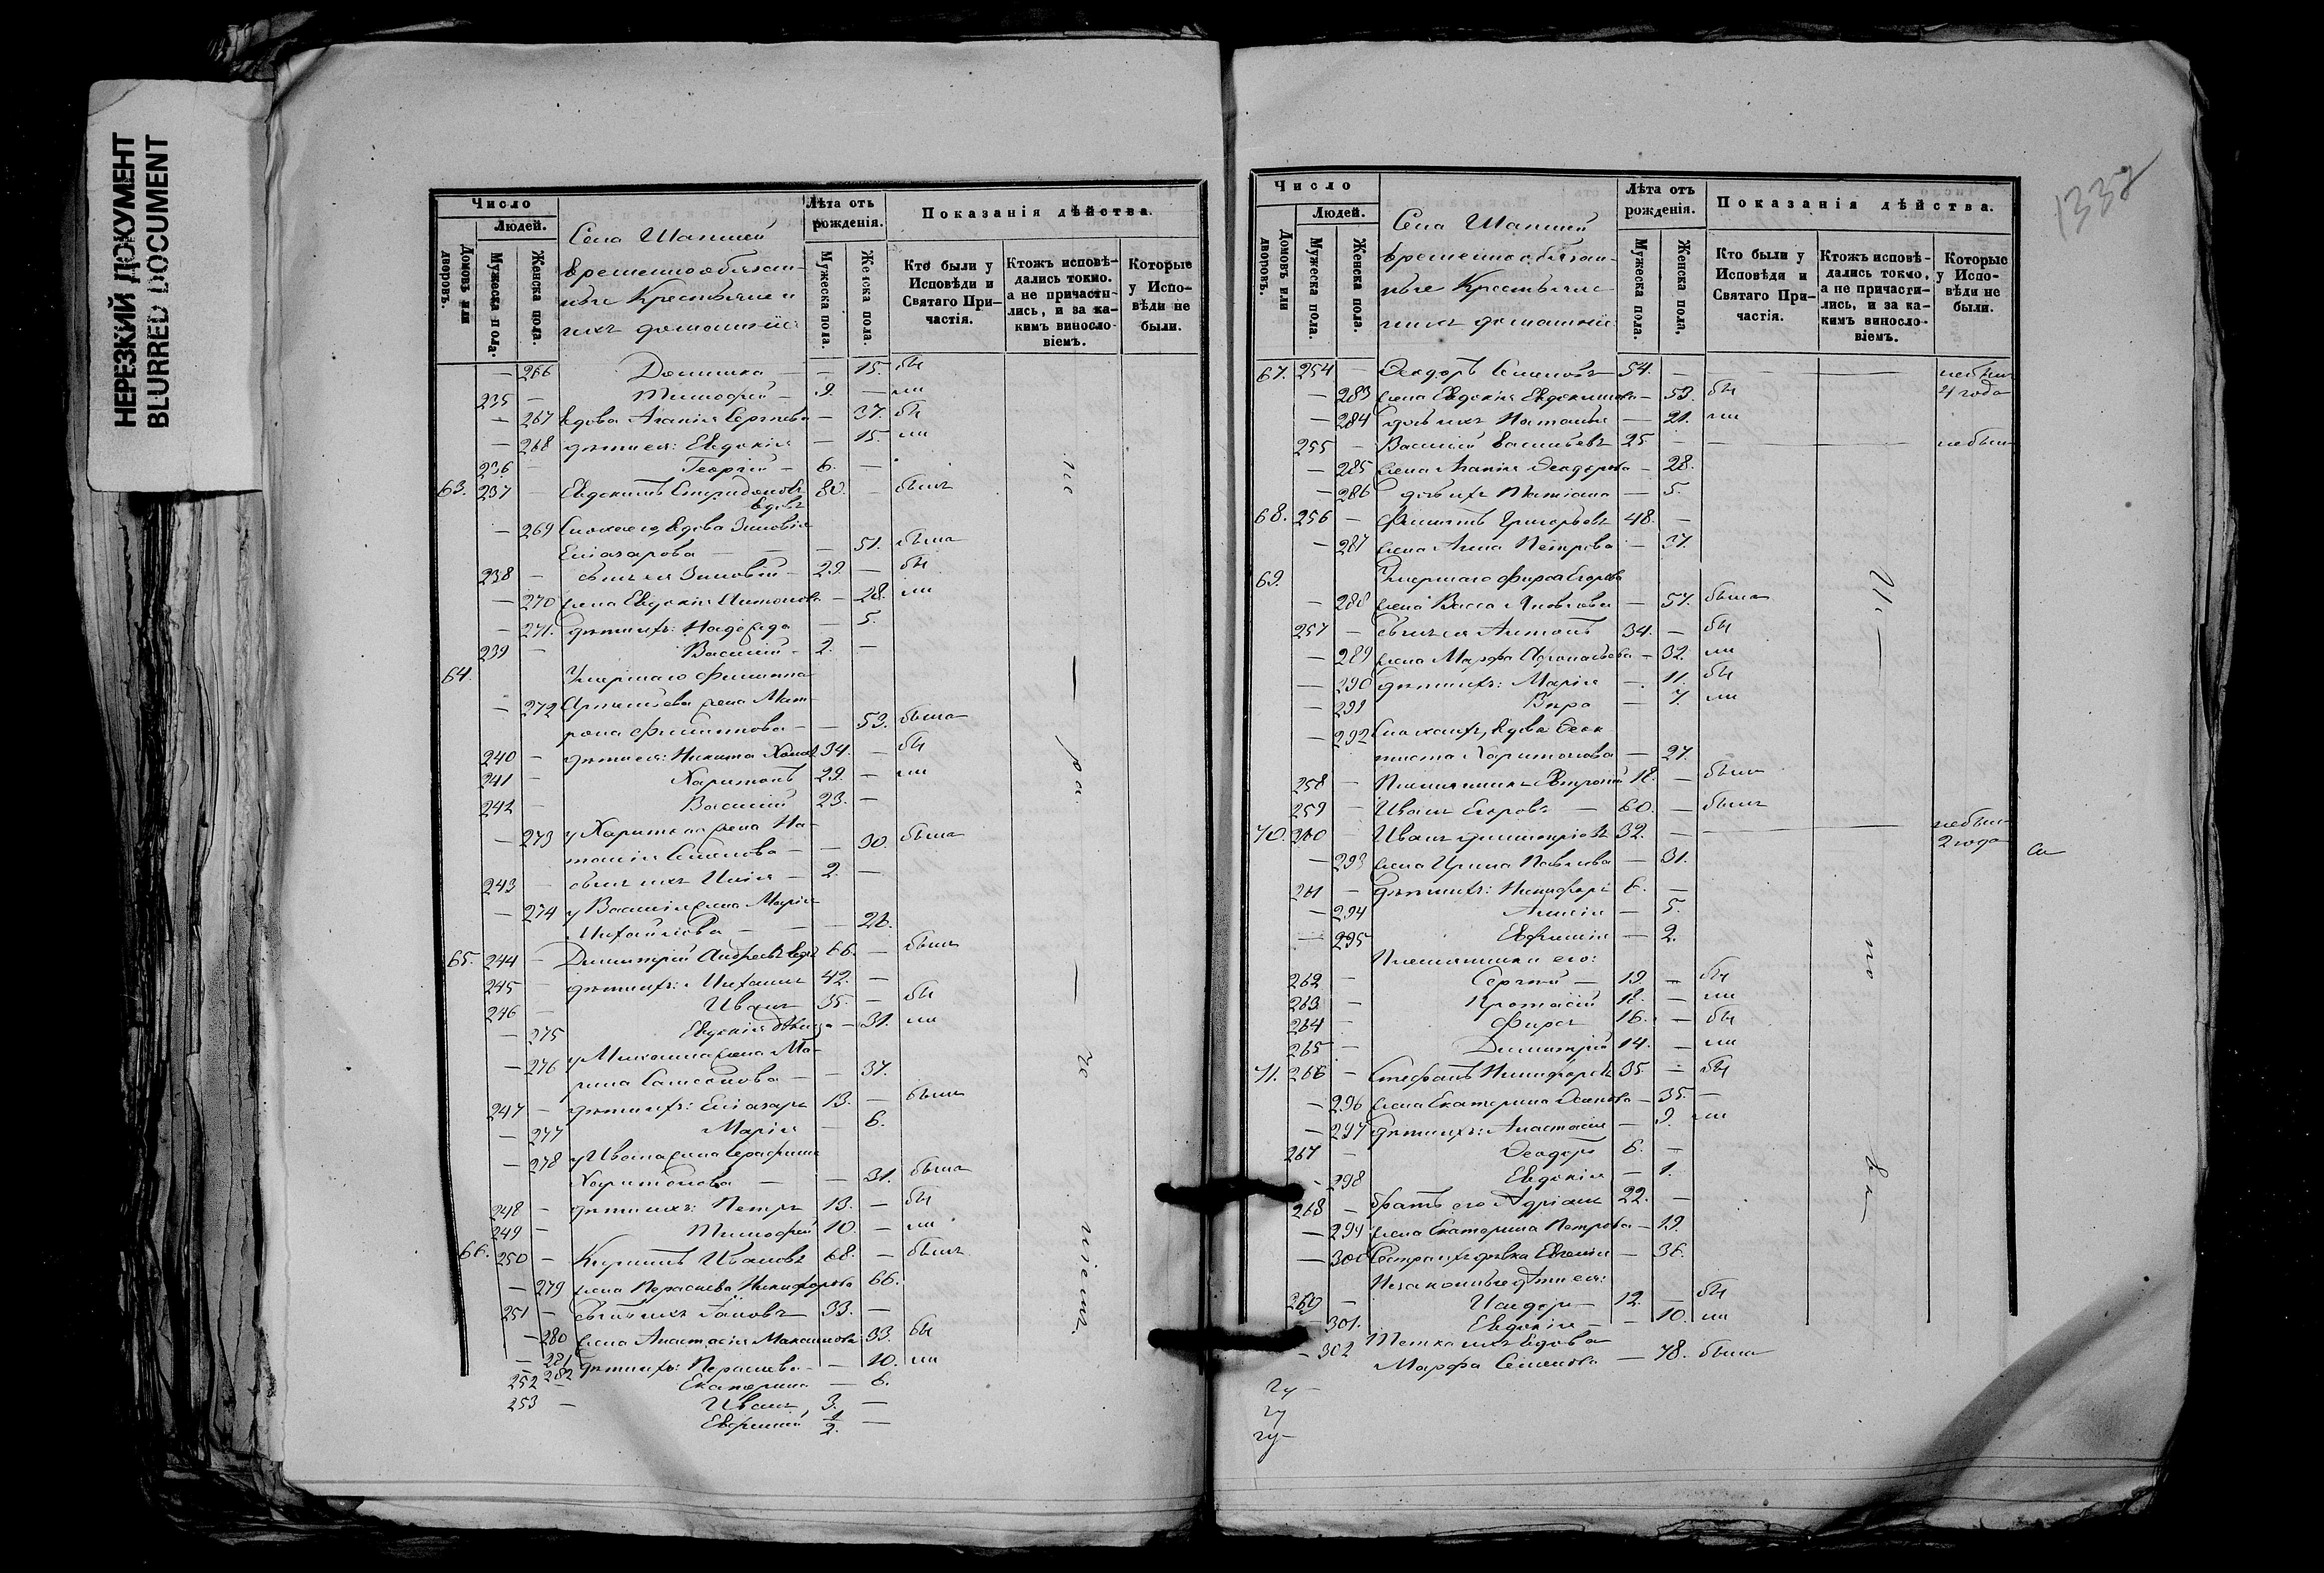 НЕРЕЗКИЙ ДОКУМЕНТ
BLURRED DOCUMENT
Число
Людей.
Домовъ или дворовъ.
Мужеска пола.
Женска пола.
Села
временнообязан-
ные Крестьяне и
ихъ домашніе
Лѣта отъ рожденія.
Мужеска пола.
Женска пола.
Показанія дѣйства.
Кто были у Исповѣди и Святаго При-частія.
Ктожъ исповѣ-дались токмо, а не причасти-лись, и за ка-кимъ винословіемъ.
Которые у Испо-вѣди не были.
— 266 — 15. бы
235 — Тимофей — 9. — ли
— 267 вдова Агапія Сергѣева — 37. бы
— 268 дѣти ея: Евдокія — 15. ли
236 — Георгій — 6. —
63. 237 — Евдокимъ Спиридоновъ 80. — былъ
вдовъ
— 269 Сноха его, вдова Зиновія
Елиазарова — — 51. была
238 — сынъ ея Зиновій — 29. — бы
— 270 жена Евдокія Антонова — 28. ли
— 271. дѣти ихъ: Надежда — 5.
239 — Василій — 2. —
64. Умершаго Филиппа
— 272 жена Мат-
рона Филиппова — — 53. была
240 — дѣти ея: Никита 34. — бы
241 — Харитонъ 29. — ли
242 — Василій 23. —
— 273 у Харитона жена На-
талія Семенова — — 30. была
243 — сынъ ихъ Илія — 2. —
— 274 у Василія жена Марія
Михайлова — — 26.
65. 244 — Димитрій Андреевъ вдовъ 66. — былъ
245 — дѣти ихъ: Михаилъ 42. —
246 — Иванъ 35. — бы
— 275 Евдокія дѣвица — 31. ли
— 276 у Михаила жена Ма-
рина Самсонова — — 37.
247 — дѣти ихъ: Елиазаръ 13. — былъ
— 277 Марія — 6.
— 278 у Ивана жена Серафима
Харитонова — — 31. была
248 — дѣти ихъ: Петръ 13. — бы
249 — Тимофей 10. — ли
66. 250 — Кириллъ Ивановъ 68. — былъ
— 279 жена Параскева Никифорова 66.
251 — сынъ ихъ Іаковъ 33. —
— 280 жена Анастасія Максимова 33. бы
— 281 дѣти ихъ: Параскева — — 10. ли
282 Екатерина — 6.
252 — Иванъ, 3. —
253 — Евфимій 1/2. —
не — ра — зу — мѣніемъ.
1332
Число
Людей.
Домовъ или дворовъ.
Мужеска пола.
Женска пола.
Села
временнообязан-
ные Крестьяне
и ихъ домашніе
Лѣта отъ рожденія.
Мужеска пола.
Женска пола.
Показанія дѣйства.
Кто были у Исповѣди и Святаго При-частія.
Ктожъ исповѣ-дались токмо, а не причасти-лись, и за ка-кимъ винословіемъ.
Которые у Испо-вѣди не были.
67. 254 — Ѳеодоръ Семеновъ 54. — — — не былъ
— 283 жена Евдокія Евдокимова — 53. бы 4 года
— 284 дочь ихъ Наталія — 21. ли
255 — Василій Васильевъ 25 — — — не былъ
— 285 жена Агапія Ѳеодорова — 28.
— 286 дочь ихъ Татіана — 5.
68. 256 — Филиппъ Григорьевъ 48. —
— 287 жена Анна Петрова — 37.
69. Умершаго Фирса Егорова
— 288 жена Васса Яковлева — 57. была
257 — сынъ ея Антонъ 34. — бы
— 289 жена Марфа Афанасьева — 32. ли
— 290 дѣти ихъ: Марія — 11. бы
— 291 Вѣра — 7. ли
— 292 Сноха ихъ, вдова Ѳеок-
тиста Харитонова — 27.
258 — Племянникъ 18. — былъ
259 — Иванъ Егоровъ — 60. — былъ
70. 260 — Иванъ Димитріевъ 32. — — — не былъ
2 года
— 293 жена Ирина Павлова — 31.
261 — дѣти ихъ: Никифоръ 6. —
— 294 Анисія — 5.
— 295 Евфимія — 2.
Племянники его:
262 — Сергѣй — 19. — бы
263 — Протасій 18. — ли
264 — Фирсъ 16. — бы
265 — Димитрій 14. — ли
71. 266 — Стефанъ Никифоровъ 35. — бы
— 296 жена Екатерина — 35. —
— 297 дѣти ихъ: Анастасія — 9. ли
267 — Ѳеодоръ 6. —
— 298 Евдокія — 1.
268 — братъ его Адріанъ 22. —
— 299 жена Екатерина Петрова — 19.
— 300 Сестра ихъ дѣвка Евгенія — 36.
Незаконные дѣти ея:
269 — Исидоръ — 12. — бы
— 301. Евдокія — — 10. ли
— 302 Тетка ихъ вдова
Марфа Семенова — 78. была